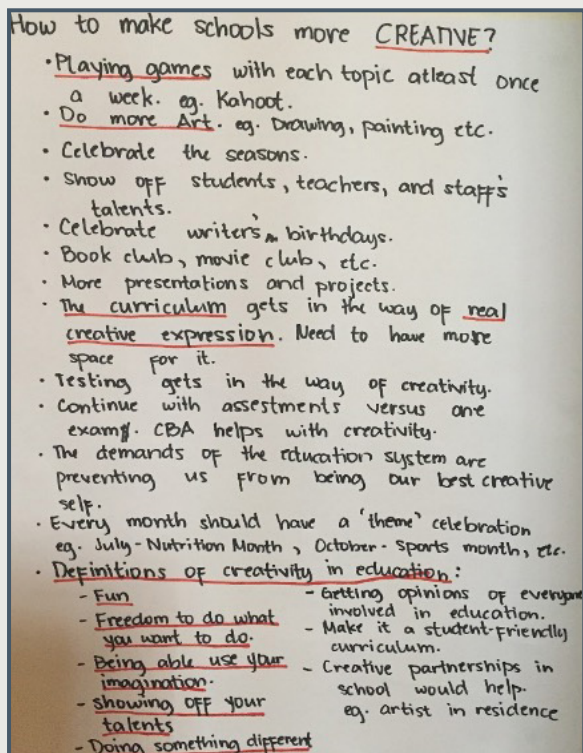 How to make schools more CREATIVE?
• Playing games with each topic atleast once
a week. eg. Kahoot.
• Do more Art. eg. Drawing, painting etc.
• Celebrate the seasons.
• Show off students, teachers, and staff's
talents.
• Celebrate writer's birthdays.
• Book club, movie club, etc.
• More presentations and projects.
• The curriculum gets in the way of real
creative expression. Need to have more
space for it.
• Testing gets in the way of creativity.
• Continue with assestments versus one
exam. CBA helps with creativity.
• The demands of the education system are
preventing us from being our best creative
self.
• Every month should have a 'theme' celebration
eg. July - Nutrition Month, October - Sports month, etc.
• Definitions of creativity in education:
- Fun
- Freedom to do what
you want to do.
- Being able use your
imagination.
- Showing off your
talents
- Doing something different
- Getting opinions of everyone
involved in education.
- Make it a student-friendly
curriculum.
- Creative partnerships in
school would help.
eg. artist in residence